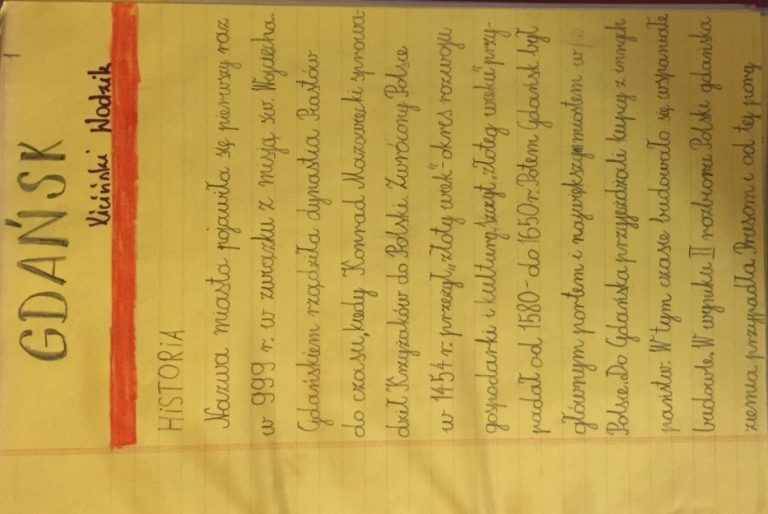 1
GDAŃSK
Kiciński Wodzik
HiSTORiA
Nazwa miasta pojawiła się pierwszy raz
w 999 r. w związku z misją św. Wojciecha.
Gdańskiem rządziła dynastia Piastów
do czasu, kiedy Konrad Mazowiecki sprowa-
dził Krzyżaków do Polski. Zwrócony Polsce
w 1454 r. przeżył „złoty wiek"- okres rozwoju
gospodarki i kultury. Szczyt „złoteg wieku" przy-
padał od 1580 - do 1650 r. Potem Gdańsk był
głównym portem i największym miastem w
Polsce. Do Gdańska przyjeżdżali kupcy z innych
państw. W tym czasie budowało się wspaniałe
budowle. W wyniku II rozbioru Polski gdańska
ziemia przypadła Prusom i od tej pory